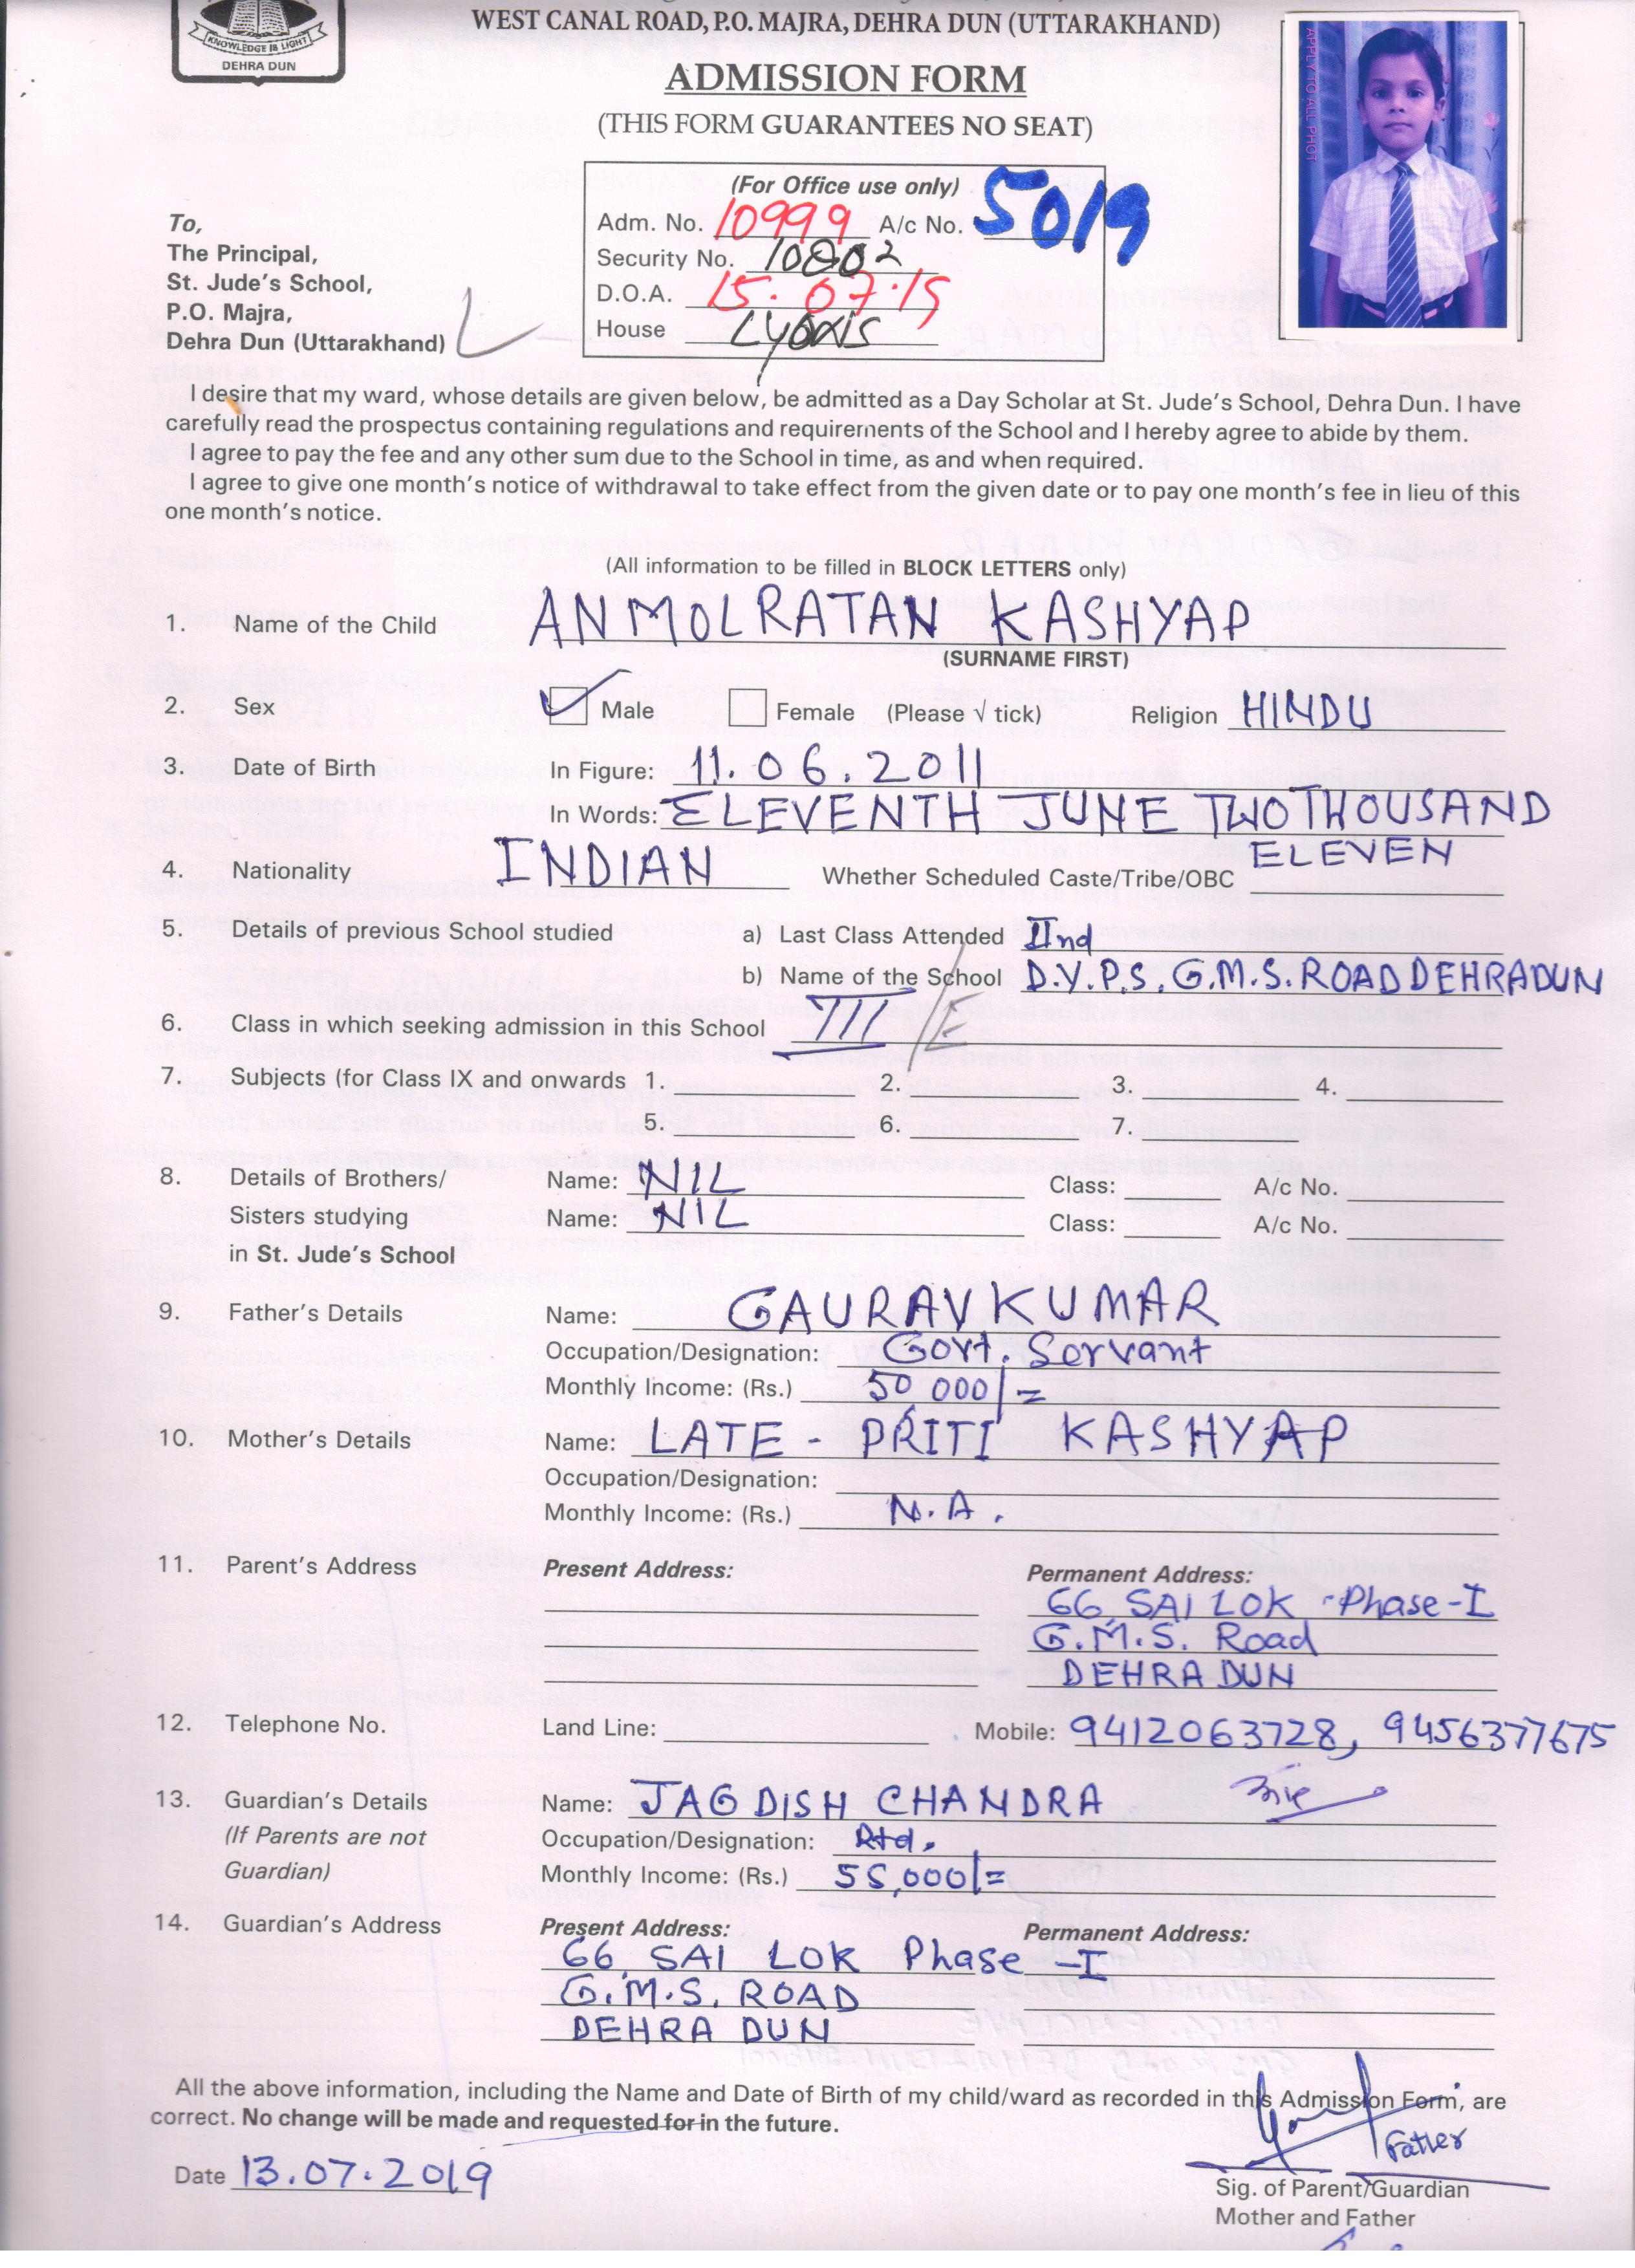 KNOWLEDGE IS LIGHT
DEHRA DUN
WEST CANAL ROAD, P.O. MAJRA, DEHRA DUN (UTTARAKHAND)
ADMISSION FORM
(THIS FORM GUARANTEES NO SEAT)
APPLY TO ALL PHOT
(For Office use only)
Adm. No. 10999 A/c No. 5019
Security No. 10802
D.O.A. 15.07.19
House Lyons
To,
The Principal,
St. Jude's School,
P.O. Majra,
Dehra Dun (Uttarakhand)
I desire that my ward, whose details are given below, be admitted as a Day Scholar at St. Jude's School, Dehra Dun. I have
carefully read the prospectus containing regulations and requirements of the School and I hereby agree to abide by them.
I agree to pay the fee and any other sum due to the School in time, as and when required.
I agree to give one month's notice of withdrawal to take effect from the given date or to pay one month's fee in lieu of this
one month's notice.
(All information to be filled in BLOCK LETTERS only)
1. Name of the Child ANMOLRATAN KASHYAP
(SURNAME FIRST)
2. Sex Male Female (Please √ tick) Religion HINDU
3. Date of Birth In Figure: 11.06.2011
In Words: ELEVENTH JUNE TWO THOUSAND
ELEVEN
4. Nationality INDIAN Whether Scheduled Caste/Tribe/OBC
5. Details of previous School studied a) Last Class Attended IInd
b) Name of the School D.Y.P.S. G.M.S. ROAD DEHRADUN
6. Class in which seeking admission in this School III / E
7. Subjects (for Class IX and onwards 1. 2. 3. 4.
5. 6. 7.
8. Details of Brothers/ Name: NIL Class: A/c No.
Sisters studying Name: NIL Class: A/c No.
in St. Jude's School
9. Father's Details Name: GAURAV KUMAR
Occupation/Designation: Govt. Servant
Monthly Income: (Rs.) 50,000/=
10. Mother's Details Name: LATE - PRITI KASHYAP
Occupation/Designation:
Monthly Income: (Rs.) N.A.
11. Parent's Address Present Address: Permanent Address:
66, SAI LOK -Phase-I
G.M.S. Road
DEHRA DUN
12. Telephone No. Land Line: Mobile: 9412063728, 9456377675
13. Guardian's Details Name: JAGDISH CHANDRA
(If Parents are not Occupation/Designation: Rtd.
Guardian) Monthly Income: (Rs.) 55,000/=
14. Guardian's Address Present Address: Permanent Address:
66, SAI LOK Phase -I
G.M.S. ROAD
DEHRA DUN
All the above information, including the Name and Date of Birth of my child/ward as recorded in this Admission Form, are
correct. No change will be made and requested for in the future.
Father
Date 13.07.2019
Sig. of Parent/Guardian
Mother and Father